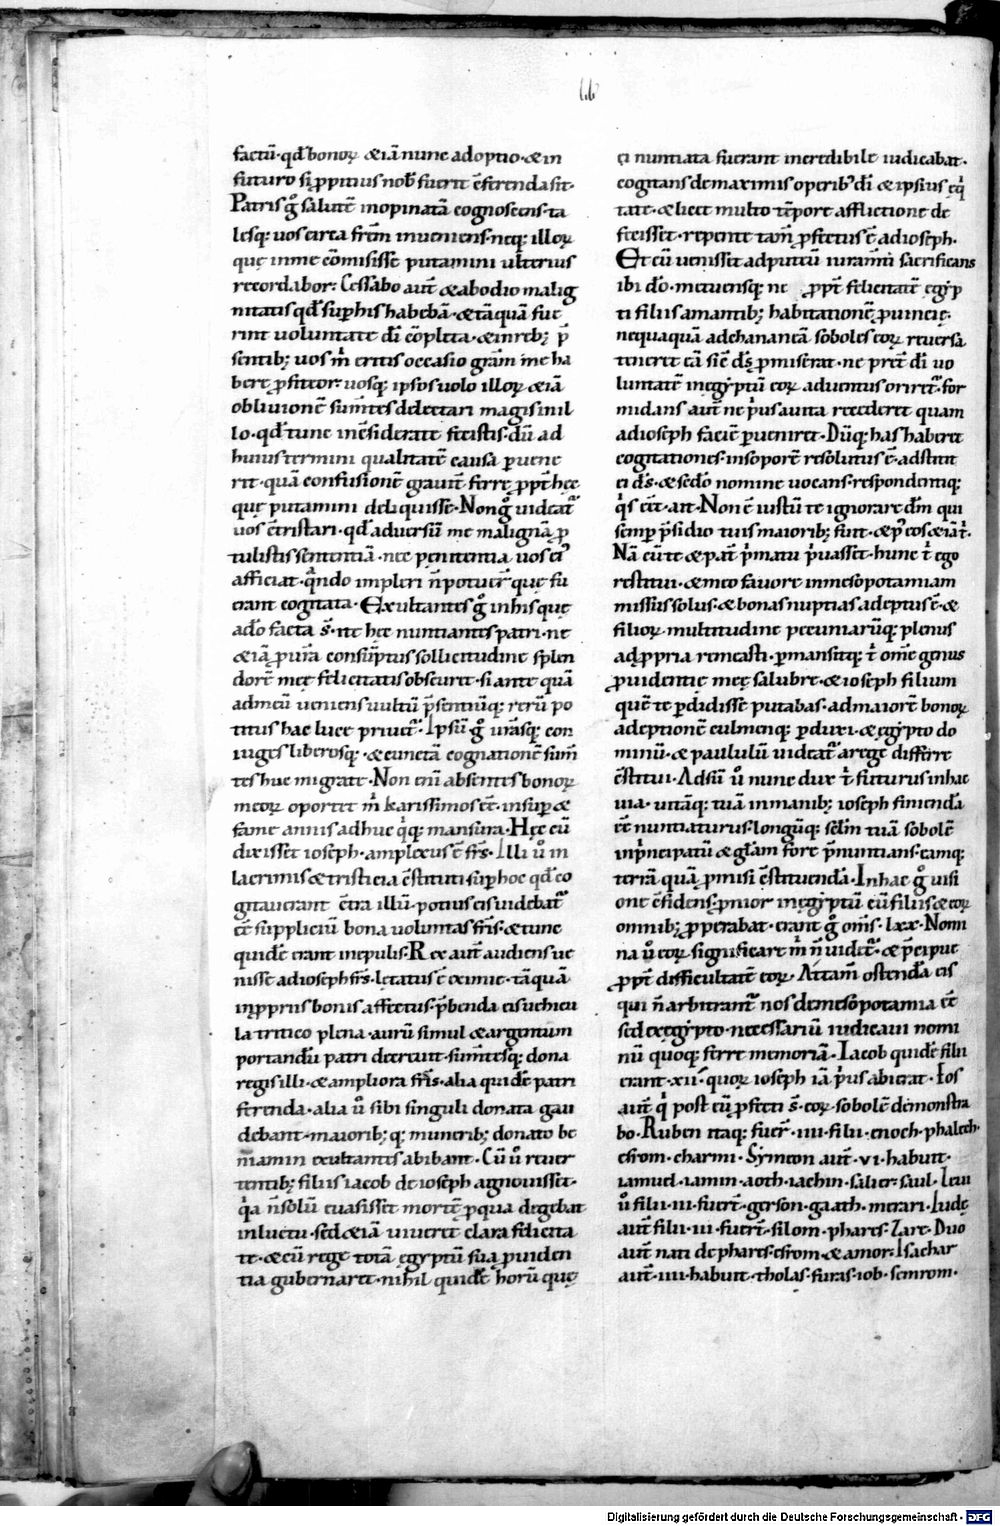 factū · qđ bonoꝝ & iā nunc adoptio · & in
futuro si ꝓpitius nob̄ fuerit c̄ferenda sit ·
Patris g̊ salutē inopinatā cognoscens · ta
lesq; uos circa frēm inueniens · neq; illoꝝ
quę in me cōmisisse putamini ulterius
recordabor: Cessabo aut̄ & ab odio malig
nitatis qđ sup̱ his habebā · & tāquā fue
rint uoluntate dī cōpleta · & in reb; p̄
sentib; uos m̄ eritis occasio grām īme ha
berę ꝓfiteor · uosq; ipsos uolo illoꝝ & iā
obliuionē sum̄tes delectari magis in il
lo · qđ tunc inc̄siderate fecistis · dū ad
huius termini qualitatē causa p̱uene
rit · quā confusionē grauit̄ ferre ꝓpt̄ hęc
quę putamini deliquisse · Non g̊ uideat̄
uos c̄tristari · qđ aduersū me malignā ꝓ
tulistis sententiā · nec penitentia uos ei'
afficiat · qn̄do impleri n̄ potuer̄ quę fu
erant cogitata · Exultantes g̊ in his quę
a dō facta s̄ · ite hęc nuntiantes patri · ne
& iā ꝓ ur̄a consūptus sollicitudine splen
dorē meę felicitatis obscuret · si ante quā
ad meū ueniens uultū p̄sentiūq; rerū po
titus hac luce priuet̄ · Ipsū g̊ ur̄asq; con
iuges liberosq; · & cunctā cognationē sum̄
tes huc migrate · Non enī absentes bonoꝝ
meoꝝ oportet m̄ karissimos c̄e · insup̱ &
fame annis adhuc qⁱq; mansura · Hęc cū
dixisset ioseph · amplexus ē fr̄s · Illi ů in
lacrimis & tristicia c̄stituti sup̱ hoc qđ co
gitauerant c̄tra illū · potius eis uidebat̄
c̄e suppliciū bona uoluntas fr̄is · & tunc
quidē erant in epulis · Rex aut̄ audiens ue
nisse ad ioseph fr̄s · lętatus ē eximie · tāquā
in ꝓpriis bonis affectus · p̄benda eis uehicu
la tritico plena · aurū simul & argentum
portandū patri decreuit · sum̄tesq; dona
regis illi · & ampliora fr̄is · alia quidē patri
ferenda · alia ů sibi singuli donata gau
debant · maiorib; q; munerib; donato be
niamin exultantes abibant · Cū ů reuer
tentib; filiis iacob de ioseph agnouisset ·
qa n̄ solū euasisset mortē ꝓ qua degebat
in luctu · sed & iā uiuere clara felicita
te · & cū rege totā ęgyptū sua ꝓuiden
tia gubernaret · nihil quidē horū quę
ei nuntiata fuerant incredibile iudicabat ·
cogitans de maximis operib' dī & ipsius ęqⁱ
tate · & licet multo tēpore afflictione de
fecisset · repente tam̄ ꝓfectus ē ad ioseph ·
Et cū uenisset ad puteū iuram̄ti sacrificans
ibi dō · metuensq; ne ꝓpt̄ felicitatē ęgyp
ti filiis amantib; habitationē ꝓuincię ·
nequaquā ad chananeā soboles eoꝝ reuersa
teneret eā sic̄ dš ꝓmiserat · ne pret̄ dī uo
luntatē in ęgyptū eoꝝ aduentus oriret̄ · for
midans aut̄ ne p'us a uita recederet quam
ad ioseph faciē p̱ueniret · Dūq; has haberet
cogitationes · in soporē resolutus ē · adstitit
ei dš · & secdo nomine uocans · respondentiq;
qⁱs eēt · ait · Non ē iustū te ignorare dm̄ qui
semp̱ p̄sidio tuis maioribꝫ fuit · & p' eos & iā t' ·
Nā cū te & pat̄ p'matu p'uasset · hunc t' ego
restitui · & meo fauore in mesopotamiam
missus solus · & bonas nuptias adeptus ē · &
filioꝝ multitudine pecuniarūq; plenus
ad ꝓpria remeasti · p̱mansitq; t' om̄e genus
ꝓuidentię meę salubre · & ioseph filium
quē te p̱didisse putabas · ad maiorē bonoꝝ
adeptionē culmenq; p̱duxi · & ęgypto do
minū · & paululū uideat̄ a rege differre
c̄stitui · Adsū ů nunc dux t' futurus in hac
uia · uitāq; tuā in manib; ioseph finiendā
c̄e nuntiaturus · longūq; sec̄lm tuā sobolē
in p'ncipatū & glam̄ fore p̄nuntians · eamq;
terrā quā ꝓmisi c̄stituendā · In hac g̊ uisi
one c̄fidens · ꝓnior in ęgyptū cū filiis & eoꝝ
omnib; ꝓperabat · erant g̊ om̄s · lxx · Nomi
na ů eoꝝ significare m̄ n̄ uidet̄ · & p̄cipue
ꝓpt̄ difficultatē eoꝝ · Attam̄ ostendā eis
qui n̄ arbitrant̄ nos de mesopotamia c̄e
sed ex ęgypto · necessariū iudicaui nomi
nū quoq; ferre memoriā · Iacob quidē filii
erant · xii · quoꝝ ioseph iā p'us abierat · Eos
aut̄ qⁱ post eū ꝓfecti s̄ · eoꝝ sobolē demonstra
bo · Ruben itaq; fuer̄ · iiii · filii · enoch · phalech ·
esrom · charmi · Symeon aut̄ · vi · habuit ·
iamuel · iamin · aoth · iachin · salier · saul · Leui
ů filii · iii · fuer̄ · gerson · gaath · merari · Iudę
aut̄ filii · iii · fuer̄ · silom · phares · Zare · Duo
aut̄ nati de phares · esrom · & amor · Isachar
aut̄ · iiii · habuit · tholas · furas · iob · semrom ·
Digitalisierung gefördert durch die Deutsche Forschungsgemeinschaft - DFG